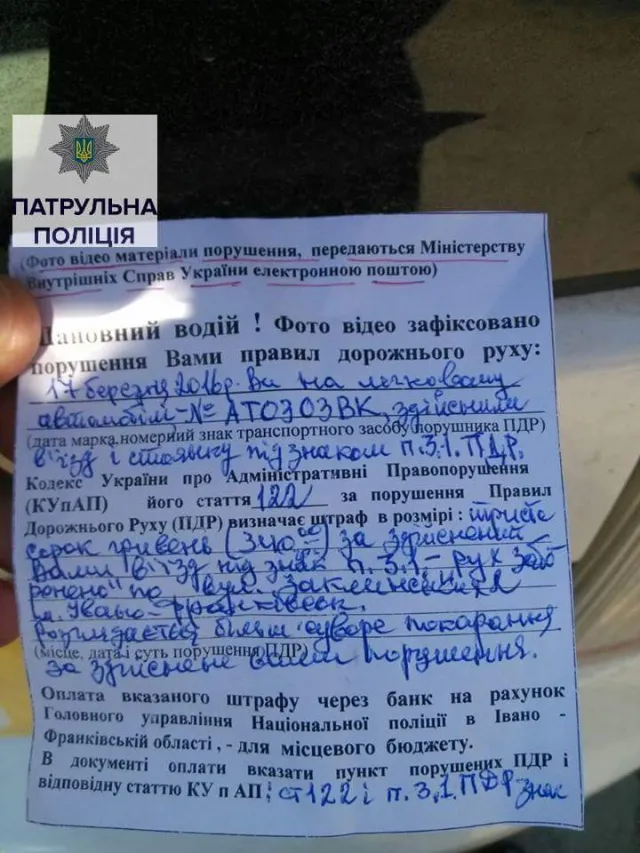 ПАТРУЛЬНА
ПОЛІЦІЯ
(Фото відео матеріали порушення, передаються Міністерству
Внутрішніх Справ України електронною поштою)
Шановний водій ! Фото відео зафіксовано
порушення Вами правил дорожнього руху:
17 березня 2016р. Ви на легковому
автомобілі-№ АТ0303ВК, здійснили
(дата марка,номерний знак транспортного засобу порушника ПДР)
в'їзд і стоянку під знаком п.3.1. ПДР.
Кодекс України про Адміністративні Правопорушення
(КУпАП) його стаття 122 за порушення Правил
Дорожнього Руху (ПДР) визначає штраф в розмірі : триста
сорок гривень (340 00) за здійснений
Вами в'їзд під знак п. 3.1.- рух забо
ронено" по вул.
м. Івано-Франківськ.
Розглядається більш суворе покарання
(місце, дата і суть порушення ПДР)
за здійснене вами порушення.
Оплата вказаного штрафу через банк на рахунок
Головного управління Національної поліції в Івано -
Франківській області , - для місцевого бюджету.
В документі оплати вказати пункт порушених ПДР і
відповідну статтю КУ п АП ; ст 122 і п. 3.1. ПДР знак